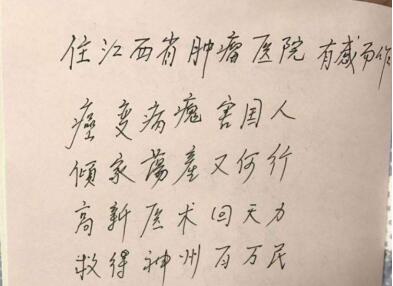 住江西省肿瘤医院有感而作
癌变病魔害国人
倾家蕩產又何行
高新医术回天力
救得神州百万民